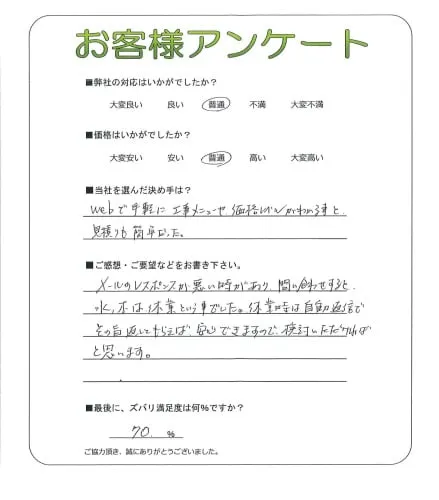 お客様アンケート
■弊社の対応はいかがでしたか?
大変良い 良い 普通 不満 大変不満
■価格はいかがでしたか?
大変安い 安い 普通 高い 大変高い
■当社を選んだ決め手は?
webで手軽に工事メニューや価格がわかる事と、
見積りも簡単だった。
■ご感想・ご要望などをお書き下さい。
メールのレスポンスが悪い時があり、問い合わせすると
水、木は休業という事でした。休業時は自動返信で
その旨返してもらえば、安心できますので、検討いただければ
と思います。
■最後に、ズバリ満足度は何%ですか?
70. %
ご協力頂き、誠にありがとうございました。